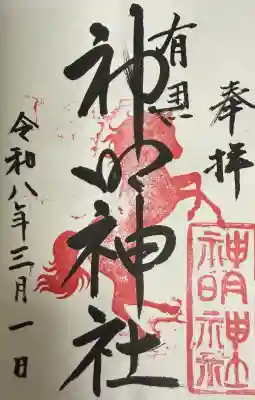 奉拝
有
神明神社
令和八年三月一日
神明
神社